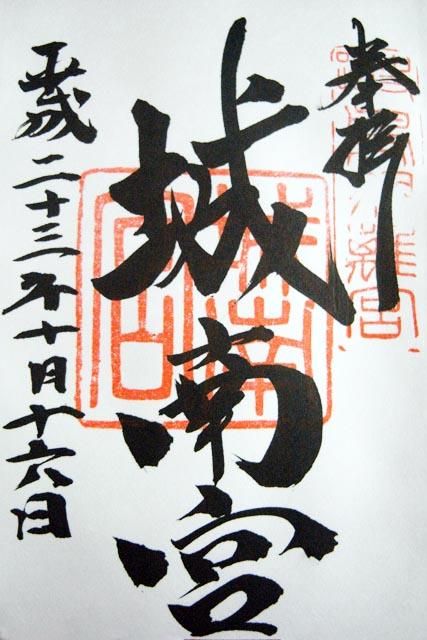 奉拝
城南宮
平成二十三年十月十六日
城南宮